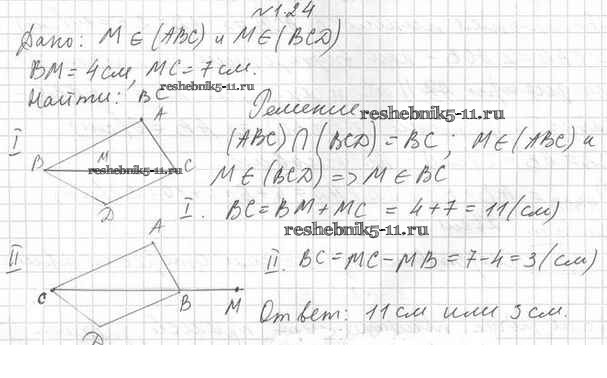 №1.24
Дано: M ∈ (ABC) и M ∈ (BCD)
BM = 4 см, MC = 7 см.
reshebnik5-11.ru
Найти: BC
Решение
reshebnik5-11.ru
I
A
B
M
C
D
reshebnik5-11.ru
(ABC) ∩ (BCD) = BC; M ∈ (ABC) и
M ∈ (BCD) => M ∈ BC
I. BC = BM + MC = 4 + 7 = 11 (см)
reshebnik5-11.ru
II
A
C
B
M
D
II. BC = MC - MB = 7 - 4 = 3 (см)
Ответ: 11 см или 3 см.